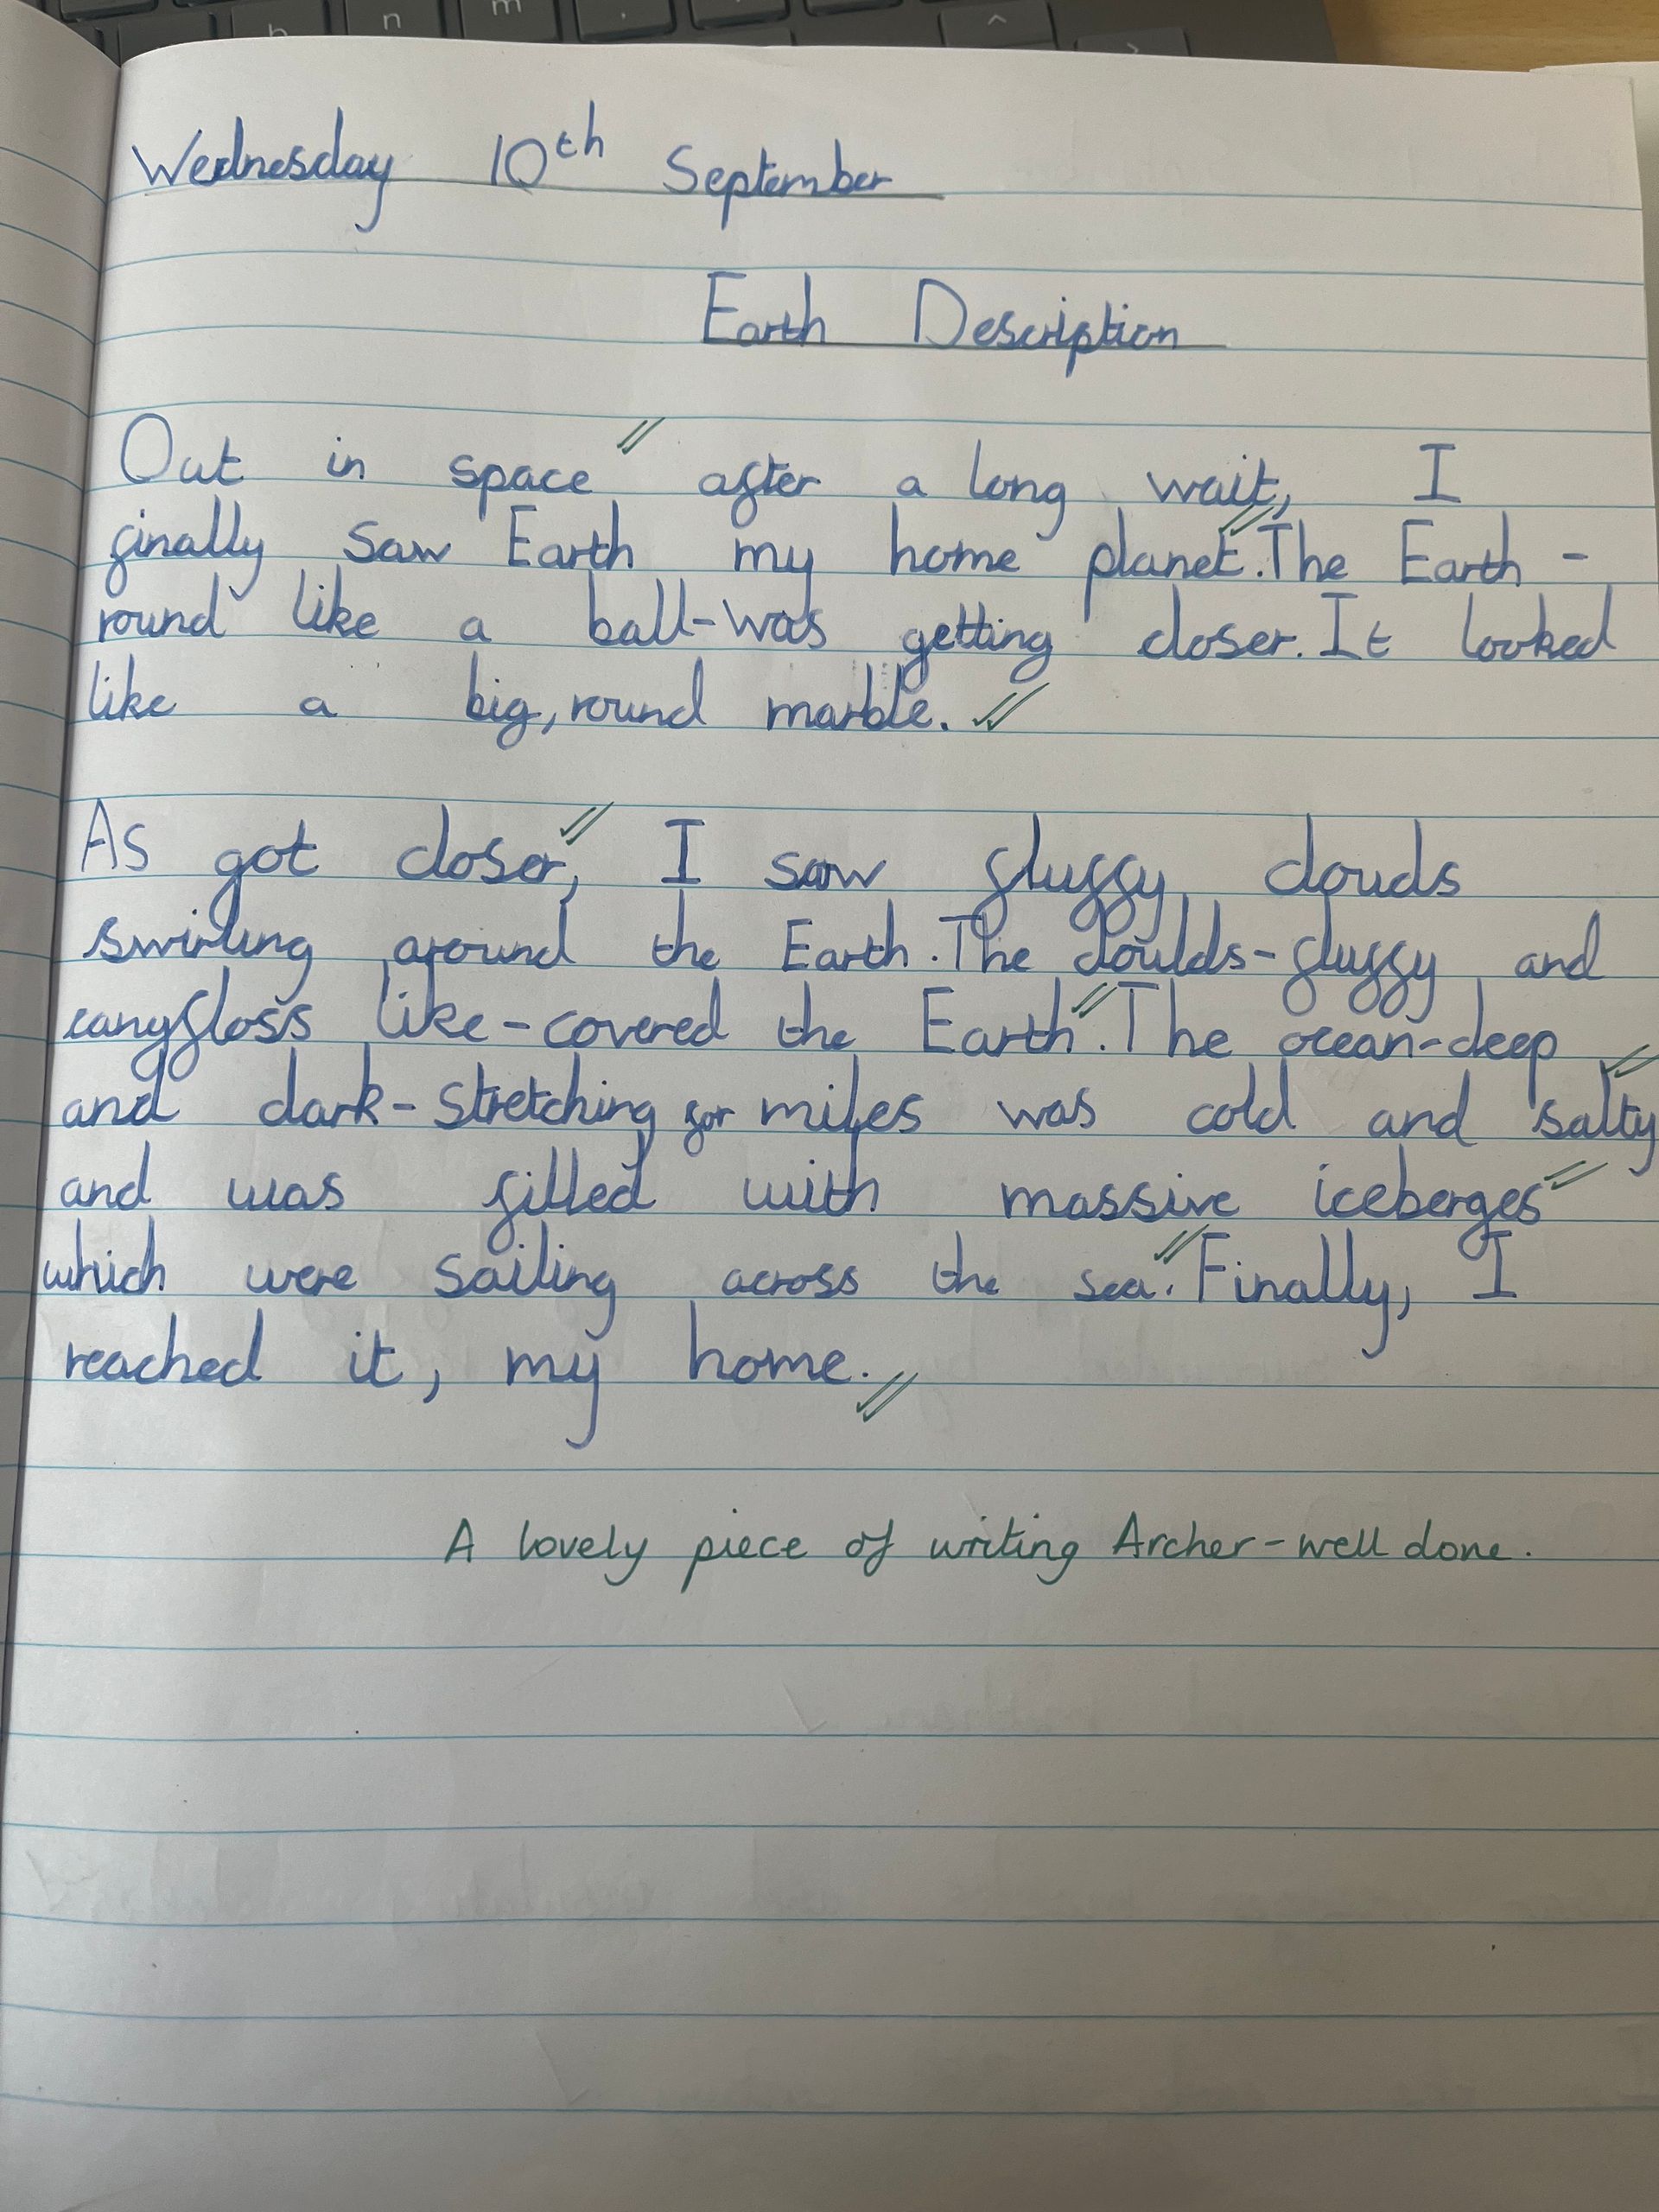 Wednesday 10th September
Earth Description
Out in space after a long wait, I
finally saw Earth my home planet. The Earth -
round like a ball-was getting closer. It looked
like a big, round marble.
As got closer, I saw fluffy clouds
swirling around the Earth. The cloulds-fluffy and
canyfloss like-covered the Earth. The ocean-deep
and dark-stretching for miles was cold and salty
and was filled with massive iceberges
which were sailing across the sea. Finally, I
reached it, my home.
A lovely piece of writing Archer-well done.